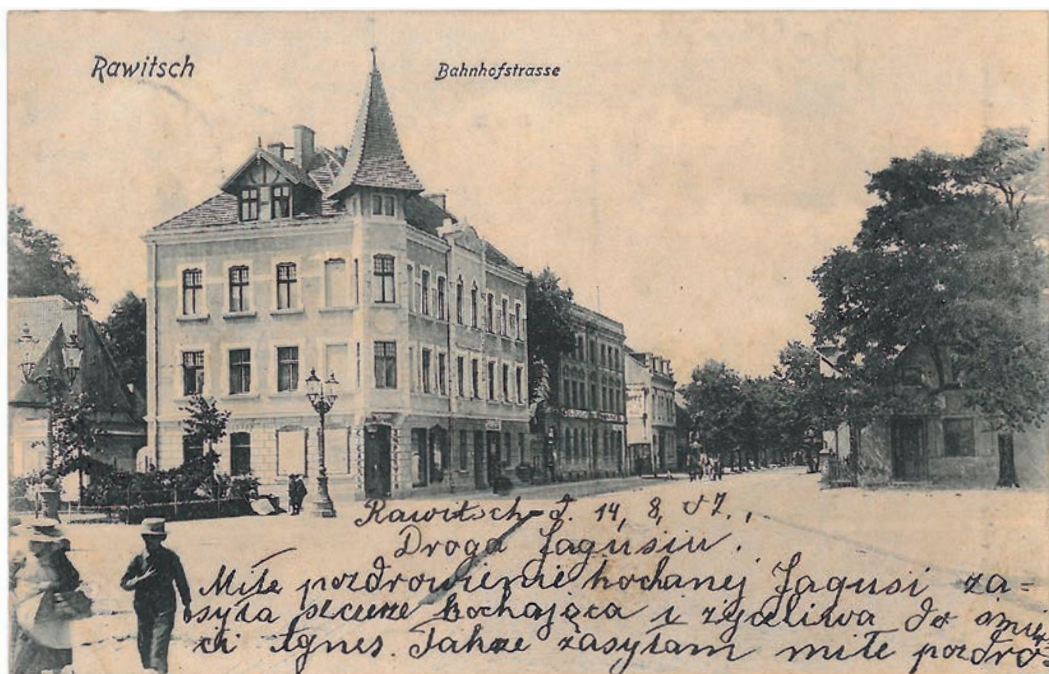 Rawitsch
Bahnhofstrasse
Rawitsch d. 14, 8, 07.,
Droga Jagusiu.
Miłe pozdrowienie kochanej Jagusi za=
syła szczerze kochająca i życzliwa do śmier
ci Agnes. Także zasyłam miłe pozdro=